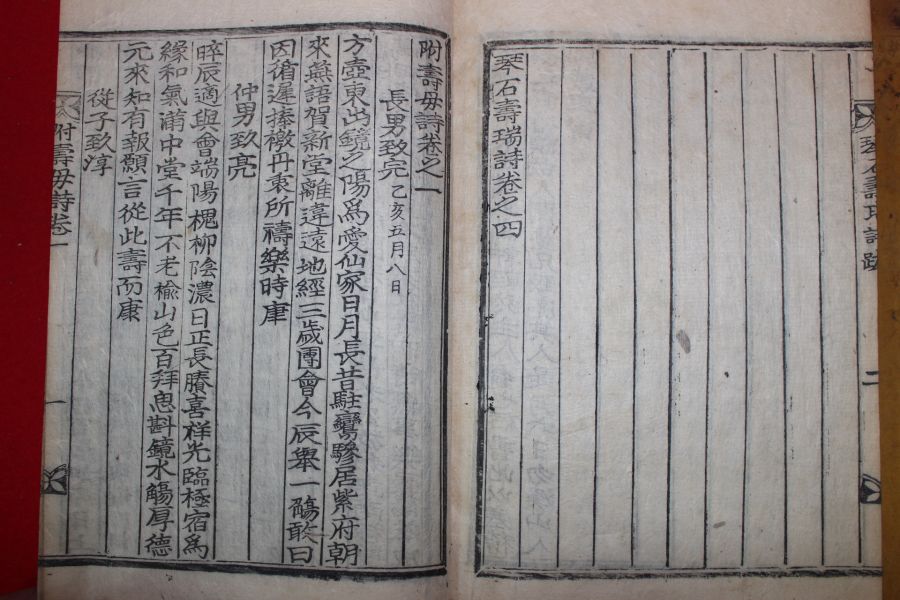 琴石壽瑞詩卷之四
附壽毋詩卷之一
長男致完 乙亥五月八日
方壺東出鏡之陽爲愛仙家日月長昔駐鸞驂居紫府朝
來燕語賀新堂離違遠地經三歲團會今辰舉一觴敢曰
因循遲接檄丹衷所禱樂時康
仲男致亮
晬辰適與會端陽槐柳陰濃日正長賸喜祥光臨極宿爲
緣和氣滿中堂千年不老楡山色百拜思斟鏡水觴厚德
元來知有報願言從此壽而康
從子致淳
附壽毋詩卷一
一